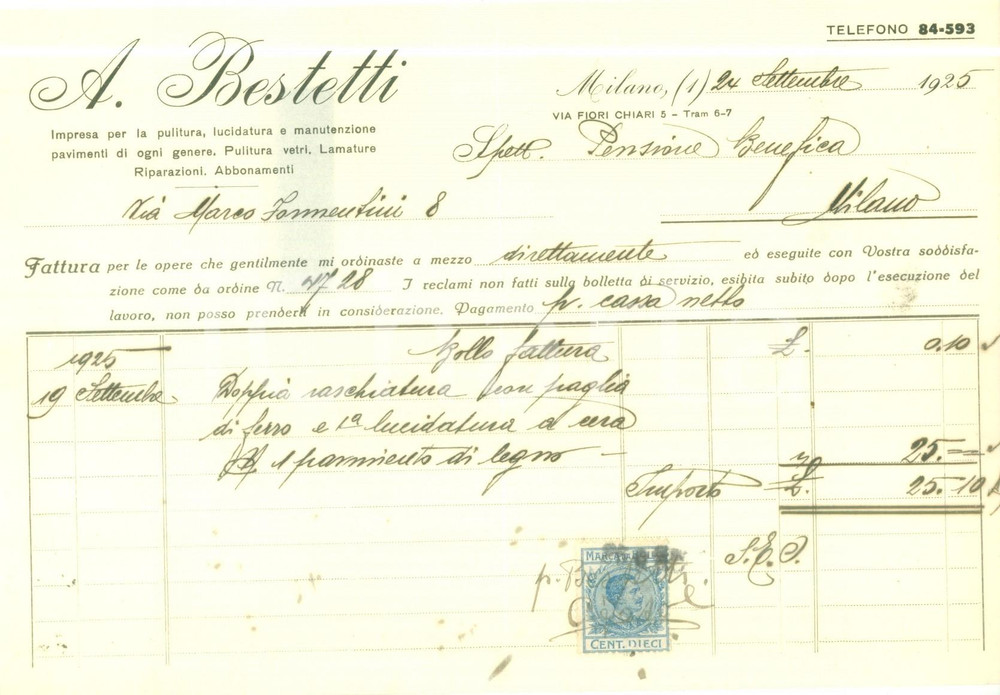 TELEFONO 84-593
A. Bestetti
Milano, (1) 24 Settembre 1925
VIA FIORI CHIARI 5 - Tram 6-7
Impresa per la pulitura, lucidatura e manutenzione
pavimenti di ogni genere. Pulitura vetri. Lamature
Riparazioni. Abbonamenti
Spett. Pensione Benefica
Via Marco Formentini 8
Milano
Fattura per le opere che gentilmente mi ordinaste a mezzo direttamente ed eseguite con Vostra soddisfa-
zione come da ordine N. 4728 I reclami non fatti sulla bolletta di servizio, esibita subito dopo l'esecuzione del
lavoro, non posso prenderli in considerazione. Pagamento p. cassa netto
1925 Bollo fattura £. 0.10
19 Settembre Doppia raschiatura con paglia
di ferro e 1a lucidatura a cera
1 pavimento di legno - " 25.=
Importo £. 25.10
S.E.O.
MARCA DA BOLLO
p. Bestetti
CENT. DIECI